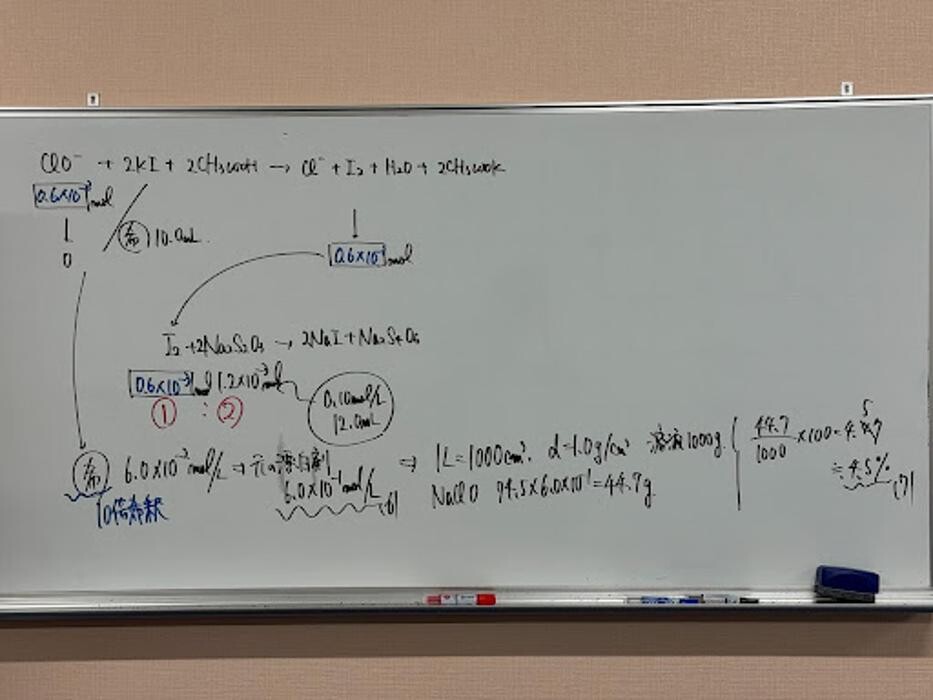 ClO⁻ + 2KI + 2CH₃COOH → Cl⁻ + I₂ + H₂O + 2CH₃COOK
0.6×10⁻³ mol
↓
0
希 10.0mL
0.6×10⁻³ mol
I₂ + 2Na₂S₂O₃ → 2NaI + Na₂S₄O₆
0.6×10⁻³ mol 1.2×10⁻³ mol
① : ②
0.10mol/L
12.0mL
希 6.0×10⁻² mol/L ⇒ 元の漂白剤
10倍希釈
6.0×10⁻¹ mol/L (6)
⇒ 1L=1000cm³. d=1.0g/cm³ 溶液1000g.
NaClO 74.5×6.0×10⁻¹=44.7g
44.7/1000 ×100=4.47
5
≒4.5% (7)